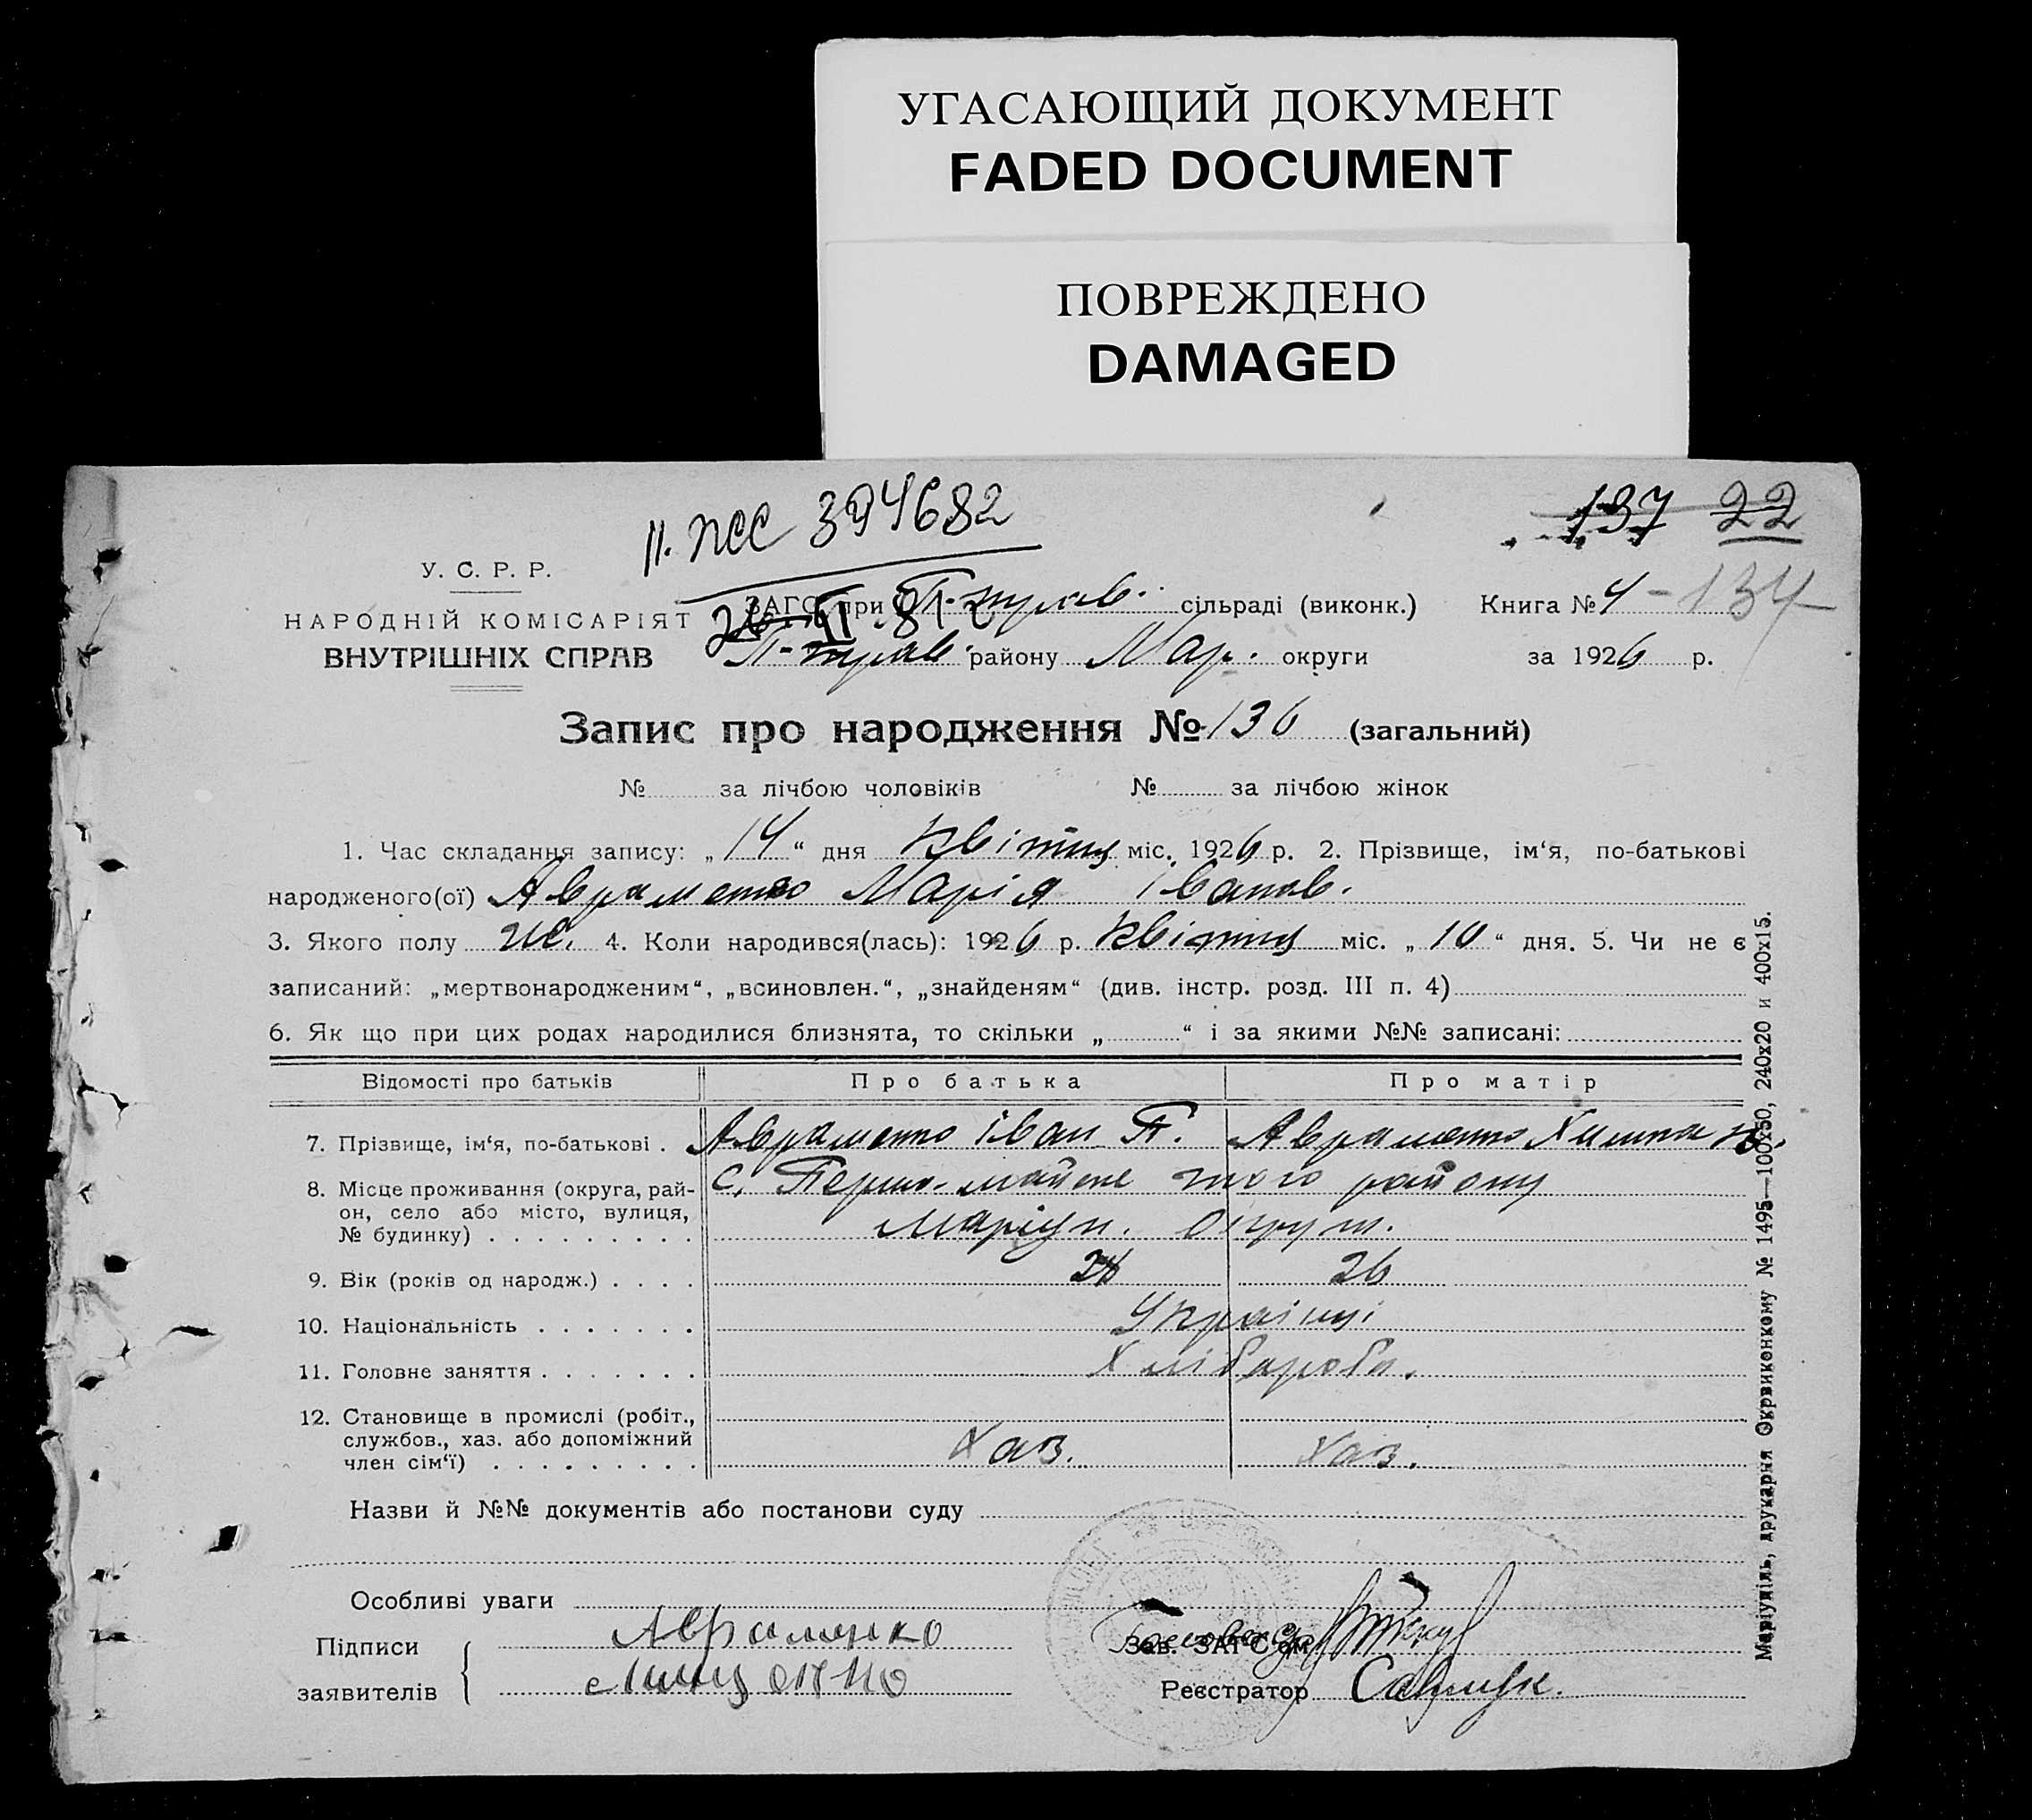 УГАСАЮЩИЙ ДОКУМЕНТ
FADED DOCUMENT
ПОВРЕЖДЕНО
DAMAGED
137 22
394682
У. С. Р. Р.
НАРОДНІЙ КОМІСАРІЯТ
ВНУТРІШНІХ СПРАВ
ЗАГС при сільраді (виконк.) Книга № 4 - 134
району Мар. округи за 1926 р.
Запис про народження № 136 (загальний)
№ за лічбою чоловіків № за лічбою жінок
1. Час складання запису: „14“ дня Квітня міс. 1926 р. 2. Прізвище, ім‘я, по-батькові
народженого(ої) Авраменко Марія Іванов.
3. Якого полу жі. 4. Коли народився(лась): 1926 р. Квітня міс. „10“ дня. 5. Чи не є
записаний: „мертвонародженим“, „всиновлен.“, „знайденям“ (див. інстр. розд. III п. 4)
6. Як що при цих родах народилися близнята, то скільки „ “ і за якими №№ записані:
Відомості про батьків Про батька Про матір
7. Прізвище, ім‘я, по-батькові . Авраменко Іван П. Авраменко
8. Місце проживання (округа, рай-
он, село або місто, вулиця,
№ будинку) . . . . . . . . .
с. Першо-майске того району
Маріуп. округи.
9. Вік (років од народж.) . . . . 26
10. Національність . . . . . . . Українці
11. Головне заняття . . . . . . . Хлібароби.
12. Становище в промислі (робіт.,
службов., хаз. або допоміжний
член сім‘ї) . . . . . . . . . Хаз. Хаз.
Назви й №№ документів або постанови суду
Особливі уваги
Підписи
заявителів
Авраменко
Зав. ЗАГС‘ом
Реєстратор
Маріупіль, друкарня Окрвиконкому № 1495—100х50, 240х20 и 400х15.